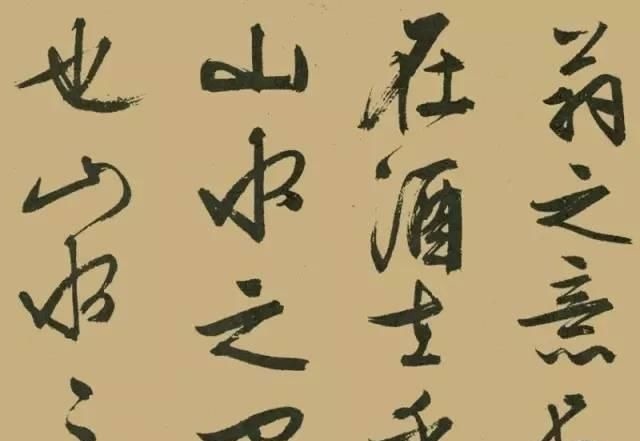 翁之意
在酒在
山水之
也山水之